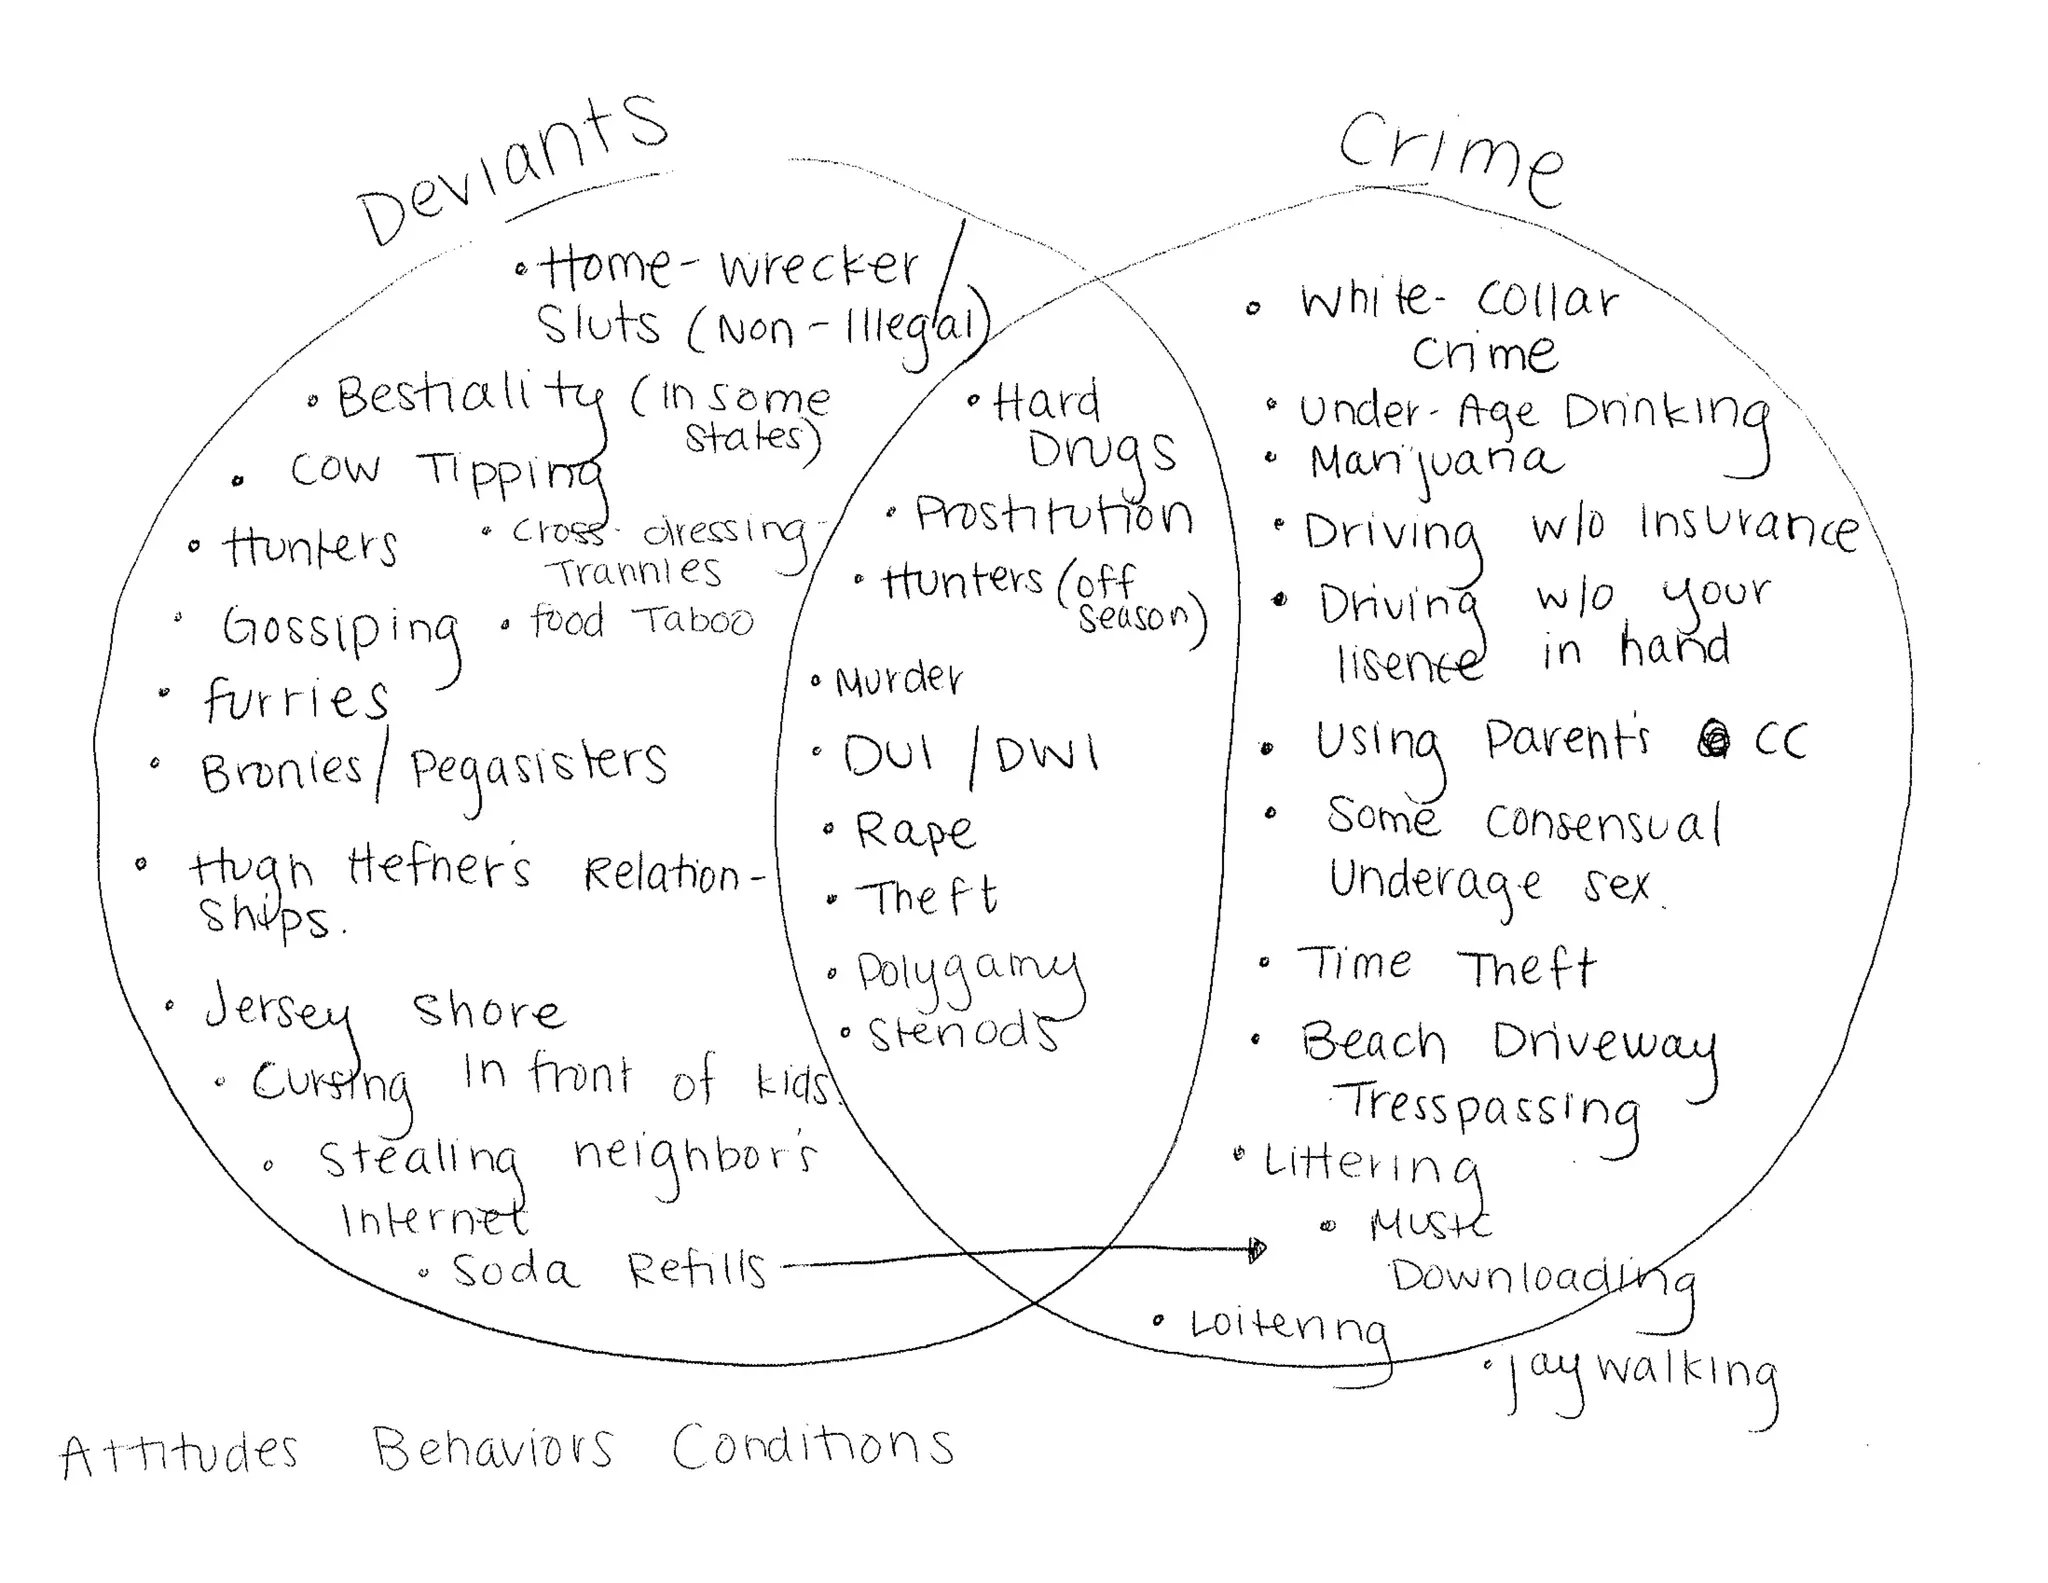 Deviants
• Home-wrecker
Sluts (Non-Illegal)
• Bestiality (in some
states)
• Cow Tipping
• Hunters
• Cross-dressing-
Trannies
• Gossiping
• food Taboo
• furries
• Bronies/Pegasisters
• Hugh Hefner's Relation-
ships.
• Jersey Shore
• Cursing in front of kids.
• Stealing neighbor's
Internet
• Soda Refills
• Hard
Drugs
• Prostitution
• Hunters (off
season)
• Murder
• DUI/DWI
• Rape
• Theft
• Polygamy
• Steriods
Crime
• White-Collar
Crime
• Under-Age Drinking
• Marijuana
• Driving w/o Insurance
• Driving w/o your
lisence in hand
• Using Parent's CC
• Some Consensual
Underage sex.
• Time Theft
• Beach Driveway
Tresspassing
• Littering
• Music
Downloading
• Loitering
• jaywalking
Attitudes Behaviors Conditions